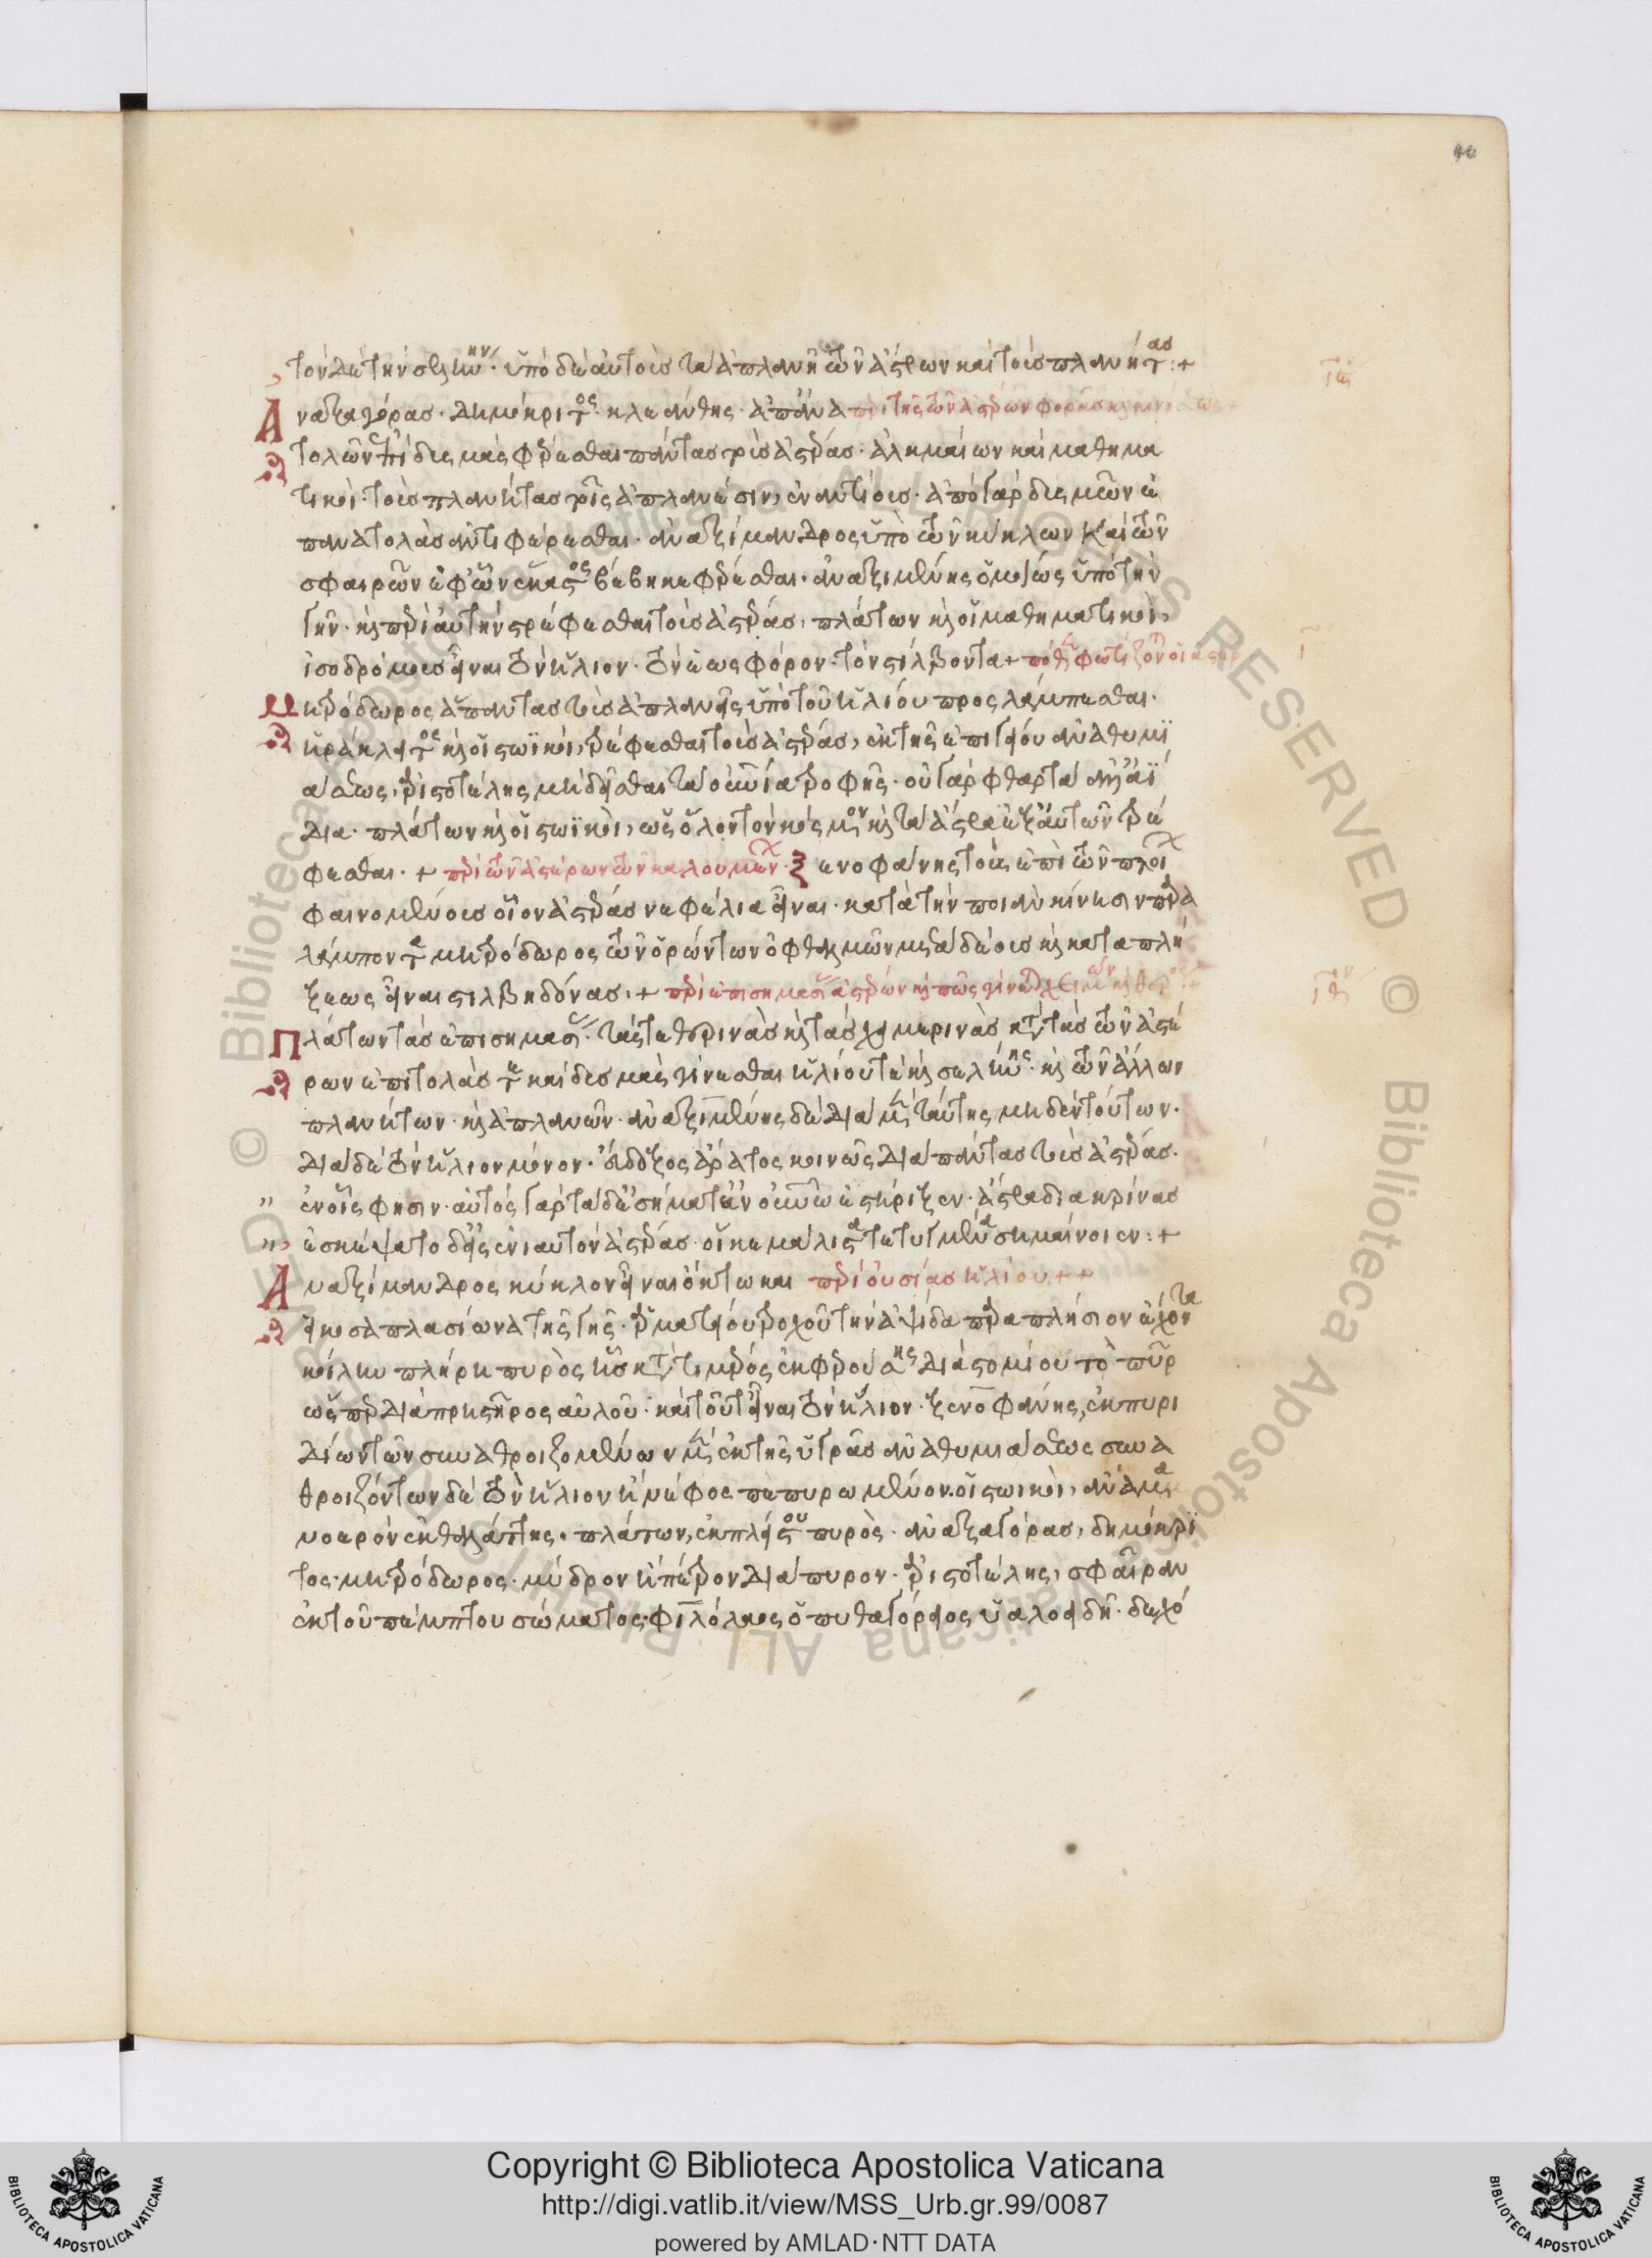 τον δὲ τὴν σελήνην· ὑπὸ δὲ αὐτοὺς τὰ ἀπλανῆ τῶν ἀστέρων καὶ τοὺς πλανήτας :+
Ἀναξαγόρας· Δημόκριτος· κλεάνθης· ἀπὸ ἀνα περὶ τῆς τῶν ἀστέρων φορᾶς καὶ κινήσεως +
τολῶν ἐπὶ δυσμὰς φέρεσθαι πάντας τοὺς ἀστέρας· ἀλκμαίων καὶ μαθημα
τικοὶ· τοὺς πλανήτας τοῖς ἀπλανέσιν, ἐναντίους· ἀπὸ γὰρ δυσμῶν ἐ
π' ἀνατολὰς ἀντιφέρεσθαι· ἀναξίμανδρος ὑπὸ τῶν κύκλων καὶ τῶν
σφαιρῶν ἐφ' ὧν ἕκαστος βέβηκε φέρεσθαι· ἀναξιμένης ὁμοίως ὑπὸ τὴν
γῆν· καὶ περὶ αὐτὴν στρέφεσθαι τοὺς ἀστέρας, πλάτων καὶ οἱ μαθηματικοὶ,
ἰσοδρόμους εἶναι τὸν ἥλιον· τὸν ἑωσφόρον· τὸν στίλβοντα + πόθεν φωτίζονται οἱ ἀστέρες
μητρόδωρος ἅπαντας τοὺς ἀπλανεῖς ὑπὸ τοῦ ἡλίου προσλάμπεσθαι·
ἡράκλειτος καὶ οἱ στωϊκοὶ, τρέφεσθαι τοὺς ἀστέρας, ἐκ τῆς ἐπιγείου ἀναθυμϊ
άσεως, ἀριστοτέλης μὴ δεῖσθαι τὰ οὐράνια τροφῆς· οὐ γὰρ φθαρτὰ ἀλλ' ἀΐ
δια· πλάτων καὶ οἱ στωϊκοὶ, ὡς ὅλον τὸν κόσμον καὶ τὰ ἄστρα ἐξ αὐτῶν τρέ
φεσθαι· + περὶ τῶν ἀστέρων τῶν καλουμένων · ξενοφάνης τοὺς ἐπὶ τῶν πλοίων
φαινομένους οἷον ἀστέρας νεφέλια εἶναι· κατὰ τὴν ποιὰν κίνησιν παρα
λάμποντα μητρόδωρος τῶν ὁρώντων ὀφθαλμῶν μετὰ δέους καὶ καταπλή
ξεως εἶναι στιλβηδόνας. + περὶ ἐπισημασίας ἀστέρων καὶ πῶς γίνεται χειμὼν καὶ θέρος +
Πλάτων τὰς ἐπισημασίας τάς τε θερινὰς καὶ τὰς χειμερινὰς κατὰ τὰς τῶν ἀστέ
ρων ἐπιτολάς τε καὶ δυσμὰς γίνεσθαι ἡλίου τε καὶ σελήνης· καὶ τῶν ἄλλων
πλανήτων· καὶ ἀπλανῶν· ἀναξιμένης δὲ διὰ μὲν ταύτης μηδὲν τούτων·
διὰ δὲ τὸν ἥλιον μόνον· εὔδοξος ἄρατος κοινῶς διὰ πάντας τοὺς ἀστέρας·
ἐν οἷς φησιν· αὐτὸς γὰρ τὰ δὲ σήματ' ἐν οὐρανῶ ἐστήριξεν· ἄστρα διακρίνας
ἐσκέψατο δ' εἰς ἐνιαυτὸν ἀστέρας· οἵ κε μάλιστα τετυγμένα σημαίνοιεν :+
Ἀναξίμανδρος κύκλον εἶναι ὀκτωκαι περὶ οὐσίας ἡλίου ++
εἰκοσαπλασίωνα τῆς γῆς· ἁρματείου τροχοῦ τὴν ἀψίδα παραπλήσιον ἔχοντα
κοίλην πλήρη πυρὸς ἧς κατά τι μέρος ἐκφαινούσης διὰ στομίου τὸ πῦρ
ὥσπερ διὰ πρηστῆρος αὐλοῦ· καὶ τοῦτ' εἶναι τὸν ἥλιον· ξενοφάνης, ἐκ πυρι
δίων τῶν συναθροιζομένων μὲν ἐκ τῆς ὑγρᾶς ἀναθυμιάσεως συνα
θροιζόντων δὲ τὸν ἥλιον ἢ νέφος πεπυρωμένον· οἱ στωικοὶ, ἄναμμα
νοερὸν ἐκ θαλάττης· πλάτων, ἐκ πλείστου πυρὸς· ἀναξαγόρας, δημόκρϊ
τος· μητρόδωρος· μύδρον ἢ πέτρον διάπυρον· ἀριστοτέλης, σφαῖραν
ἐκ τοῦ πέμπτου σώματος· φιλόλαος ὁ πυθαγόρειος ὑαλοειδῆ· δεχό
Copyright © Biblioteca Apostolica Vaticana
http://digi.vatlib.it/view/MSS_Urb.gr.99/0087
powered by AMLAD·NTT DATA